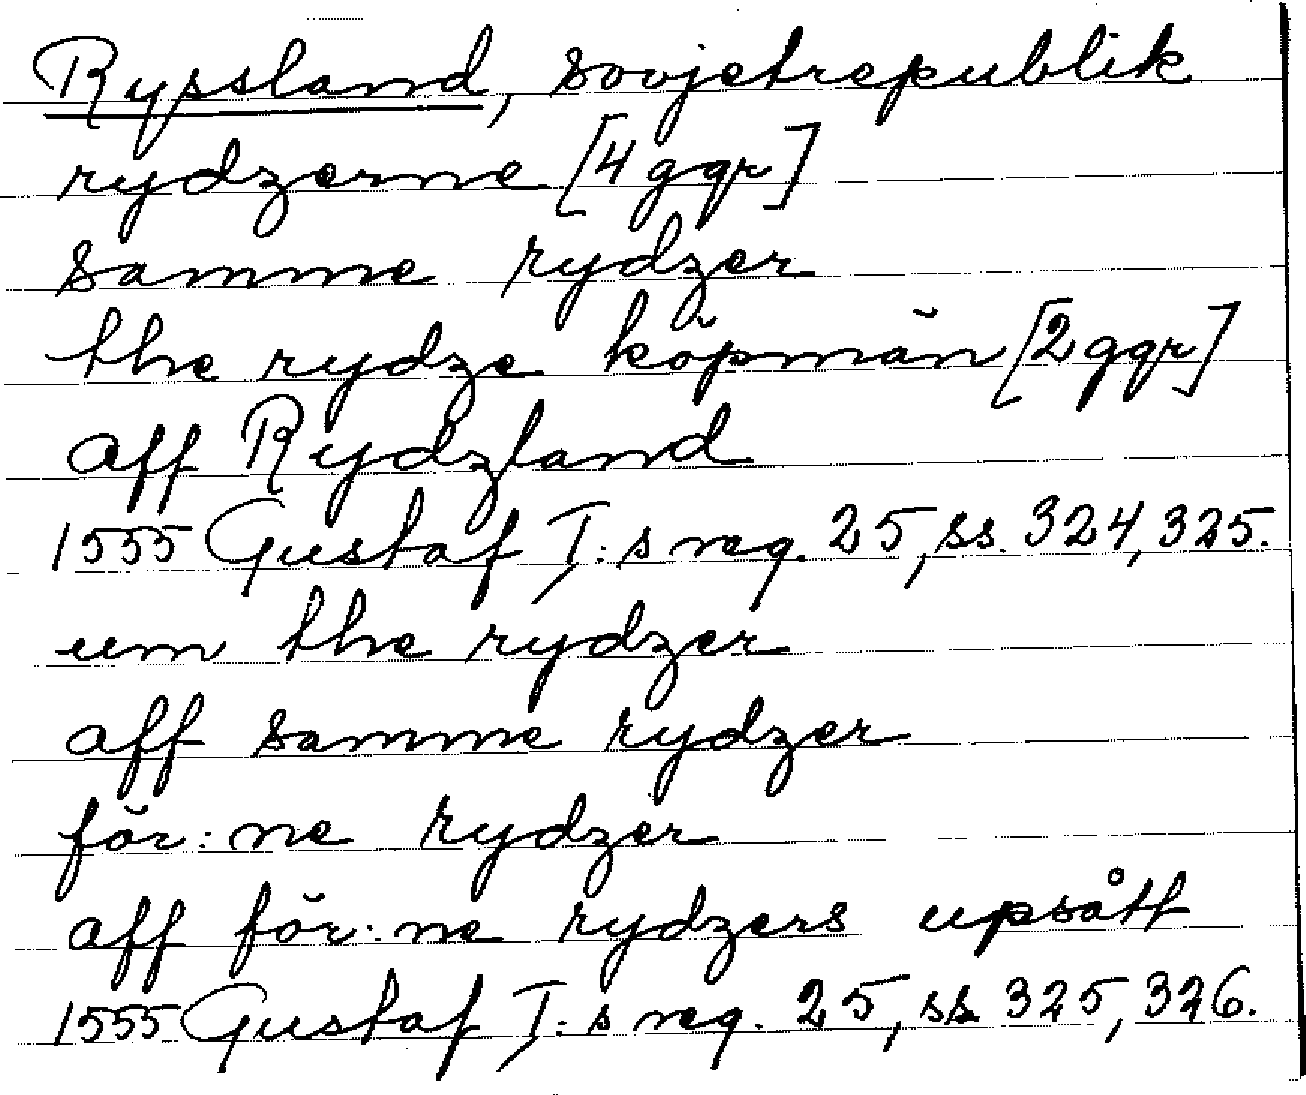 Ryssland, sovjetrepublik
rydzerne [4 ggr]
samme rydzer
the rydze köpmän [2 ggr]
aff Rydzland
1555 Gustaf I:s reg. 25, ss. 324, 325.
um the rydzer
aff samme rydzer
för:ne rydzer
aff för:ne rydzers upsått
1555 Gustaf I:s reg. 25, ss. 325, 326.